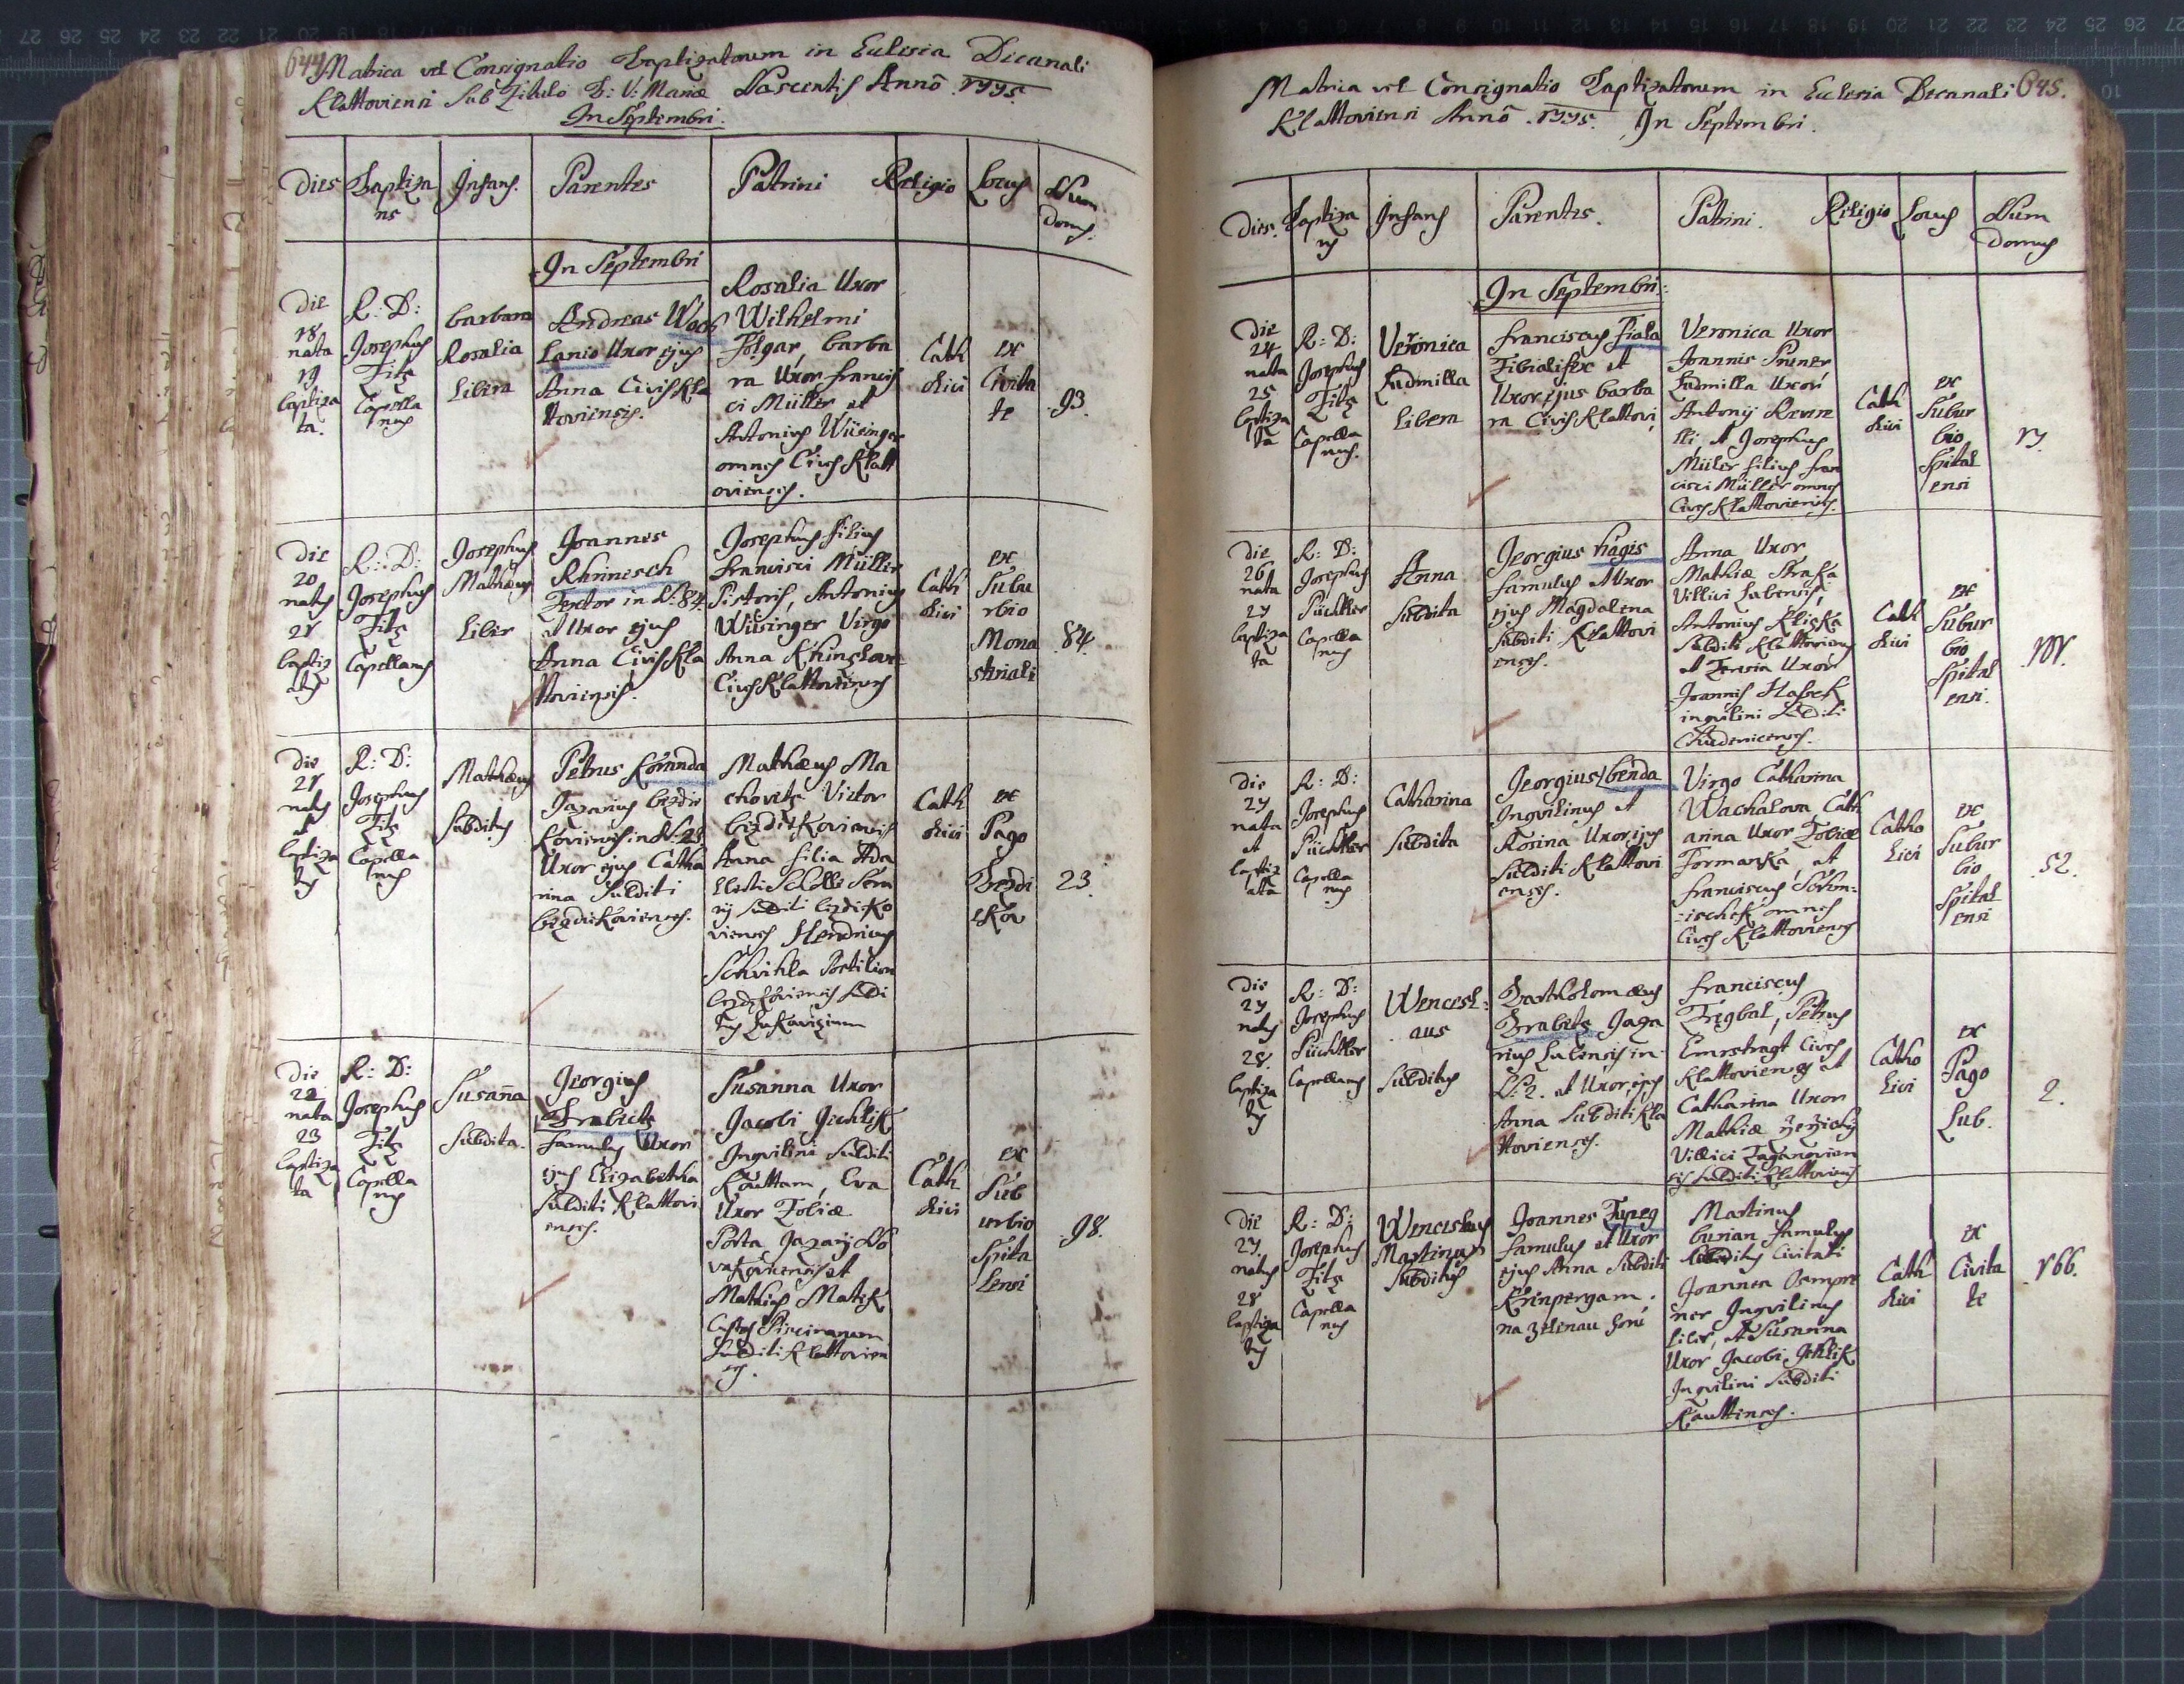 644
Matrica vel Consignatio Baptizatorum in Eclesia Decanali
Klattoviensi Sub Titulo B: V: Mariæ Nascentis Annõ 1775.
In Septembri.
Dies
Baptiza
ns
Infans.
Parentes
Patrini
Religio
Locus
Num
domus.
In Septembri
die
18
nata
19
baptiza
ta.
R: D:
Josephus
Titz
Capella
nus
barbara
Rosalia
Libera
Andreas
Lanio Uxor ejus
Anna Cives Kla
ttovienses.
Rosalia Uxor
Wilhelmi
Folgar, barba
ra Uxor francis
ci Müller et
Antonius Wüsinger
omnes Cives Klatt
ovienses.
Cath
olici
ex
Civita
te
93.
die
20
natus
21
baptiz
atus
R: D:
Josephus
Titz
Capellanus
Josephus
Mathæus
Liber
Joannes
Rhinesch
Textor in N: 84
et Uxor ejus
Anna Cives Kla
ttovienses.
Josephus filius
francisci Müller
Pistoris, Antonius
Wüsinger Virgo
Anna
Cives Klattovienses
Cath
olici
ex
Subu
rbio
Mona
steriali
84.
die
21
natus
et
baptiza
tus
R: D:
Josephus
Titz
Capella
nus
Mathæus
Subditus
Petrus Koranda
Gazarius bezdie
koviensis in N: 23
Uxor ejus Catha
rina Subditi
bezdiekovienses.
Mathæus Ma
chovitz Victor
bezdiekoviensis
Anna filia Ada
lberti Schelle
Subditi bezdieko
vienses Hendricus
Schvihla Postilion
Subdi
tus
Cath
olici
ex
Pago
Bezdi
ekov
23.
die
22
nata
23
baptiza
ta
R: D:
Josephus
Titz
Capella
nus
Susanna
Subdita.
Georgius
Hrabietz
famulus Uxor
ejus Elizabetha
Subditi Klattovi
enses.
Susanna Uxor
Jacobi Jichlik
Inqvilini Subditi
Kauttam, Eva
Uxor Tobiæ
Posta Gazarij No
vakoviensis et
Mathias Matik
Custos
Subditi Klattovien
es.
Cath
olici
ex
Sub
urbio
Spita
lensi
98.
Matrica vel Consignatio Baptizatorum in Eclesia Decanali 645.
Klattoviensi Annõ 1775. In Septembri.
Dies.
Baptiza
ns
Infans
Parentes.
Patrini.
Religio
Locus
Num
domus
In Septembri:
die
24
nata
25
baptiza
ta
R: D:
Josephus
Titz
Capella
nus.
Veronica
Ludmilla
Libera
franciscus Fiala
Tibialifex et
Uxor ejus barba
ra Cives Klattovi
Veronica Uxor
Joannis Pruner
Ludmilla Uxor
Antonij
et Josephus
Müler filius fran
cisci Müller omnes
Cives Klattovienses.
Cath
olici
ex
Subur
bio
Spital
ensi
17.
die
26
nata
27
baptiza
ta
R: D:
Josephus
Püchtler
Capella
nus
Anna
Subdita
Georgius hagis
famulus et Uxor
ejus Magdalena
Subditi Klattovi
enses.
Anna Uxor
Mathiæ Straka
Villici Lubensis,
Antonius Kliska
Subditi Klattoviens
et Teresia Uxor
Joannis Hassek
inqvilini Subditi
Chudenicenses.
Cath
olici
ex
Subur
bio
Spital
ensi.
101.
die
27
nata
et
baptiz
ata
R: D:
Josephus
Püchtler
Capella
nus
Catharina
Subdita
Georgius benda
Inqvilinus et
Rosina Uxor ejus
Subditi Klattovi
enses.
Virgo Catharina
Wachalova Cath
arina Uxor Tobiæ
Formanka, et
franciscus
omnes
Cives Klattovienses
Catho
lici
ex
Subur
bio
Spital
ensi
52.
die
27
natus
28.
baptiza
tus
R: D:
Josephus
Püchtler
Capellanus
Wencesl:
aus
Subditus
Bartholomæus
Hrabetz Gaza
rius Lubensis in
N: 2. et Uxor ejus
Anna Subditi Kla
ttovienses.
franciscus
Petrus
Cives
Klattovienses et
Catharina Uxor
Mathiæ
Villici
Subditi Klattoviens
Catho
lici
ex
Pago
Lub.
2.
die
27.
natus
28
baptiza
tus
R: D:
Josephus
Titz
Capella
nus
Wenceslaus
Martinus
Subditus
Joannes
famulus et Uxor
ejus Anna Subditi
na
Martinus
burian famulus
Subditus Civitati
Joannes
Inqvilinus
Liber, et Susanna
Uxor Jacobi Jihlik
Inqvilini Subditi
Kauttenses.
Cath
olici
ex
Civita
te
166.